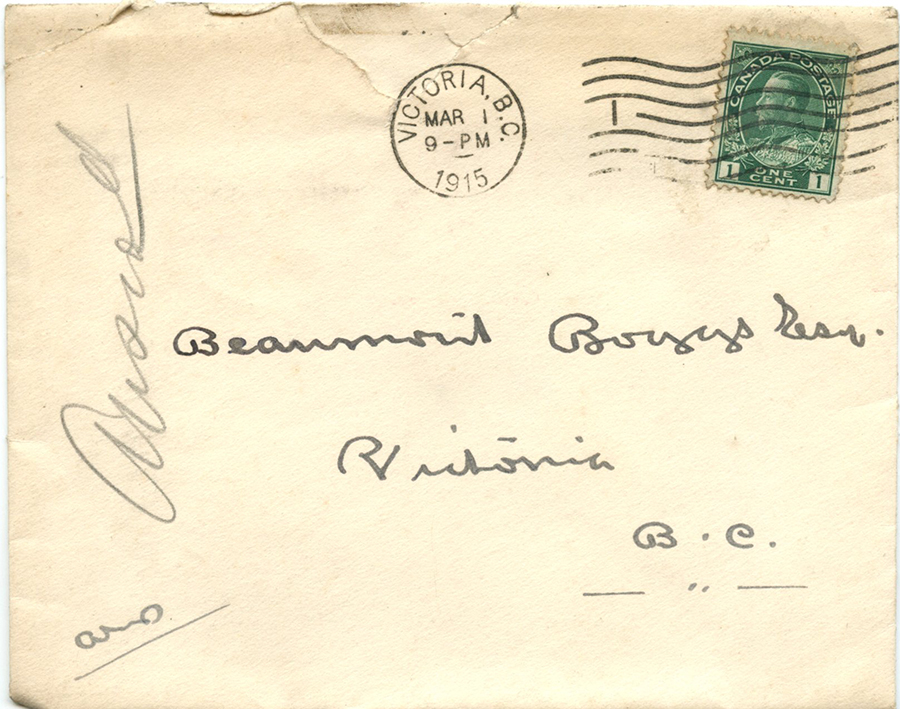 VICTORIA, B.C.
MAR 1
9-PM
1915
1
CANADA POSTAGE
1 ONE CENT 1
Beaumont Boggs Esq.
Victoria
B.C.
ans